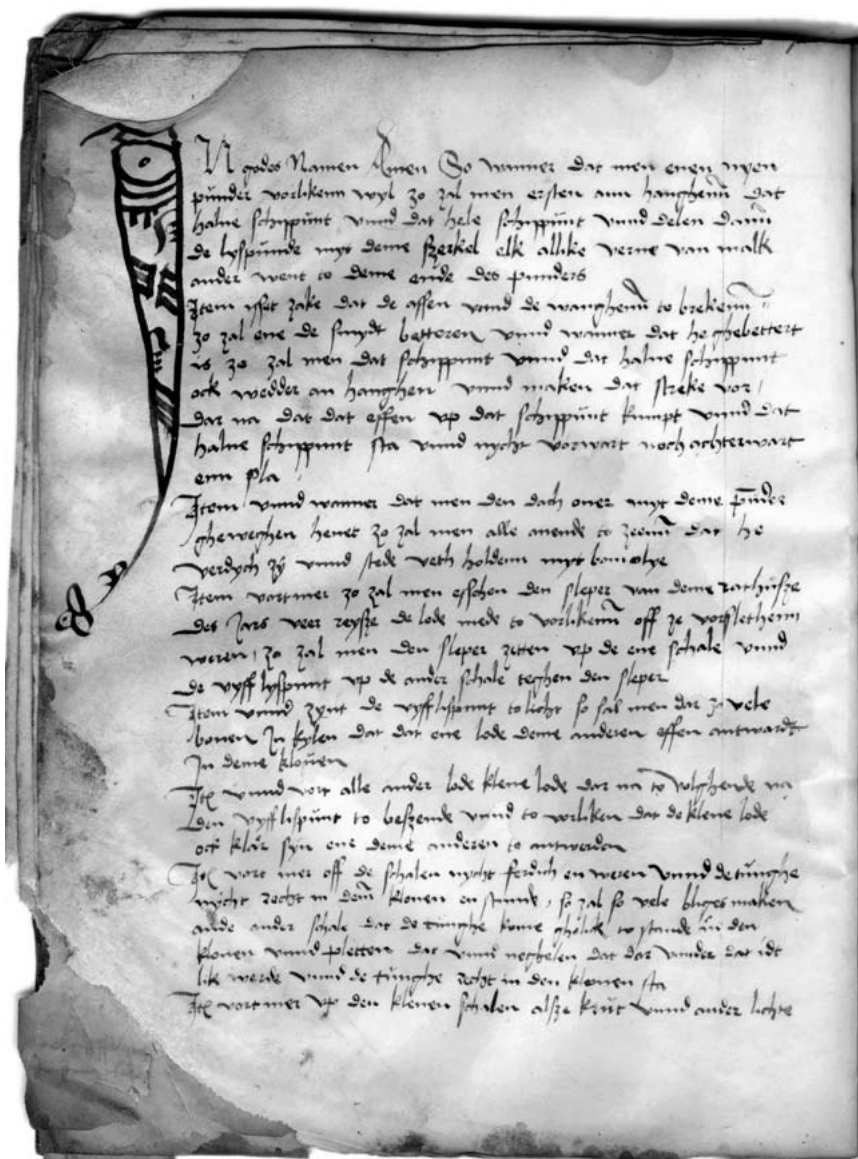 IN godes Namen Amen So wanner dat men enen nyen
punder vorlikenn wyl zo zal men ersten ann hanghenn dat
halue schyppunt vnnd dat hele schyppunt vnnd delen dann
de lyspunde myt deme szerkel elk allike verne van malk
ander went to deme ende des punders
Item ysset zake dat de assen vnnd de wanghenn to brekenn
zo zal ene de smydt betteren vnnd wanner dat he ghebettert
is zo zal men dat schyppunt vnnd dat halue schyppunt
ock wedder an hanghen vnnd maken dat streke vor /
dar na dat dat effen vp dat schyppunt kumpt vnnd dat
halue schyppunt sta vnnd nycht vorwart noch achterwart
enn sla
Item vnnd wanner dat men den dach ouer myt deme punder
gheweghen heuet zo zal men alle auende to zeenn dat he
verdych zy vnnd stede veth holdenn myt bomolye
Item vortmer zo zal men esschen den sleper van deme rathusze
des Jars veer reysze de lode mede to vorlikenn off ze vorslethenn
weren / zo zal men den sleper zetten vp de ene schale vnnd
de vyff lyspunt vp de ander schale teghen den sleper
Item vnnd zynt de vyff lispunt to licht so sal men dar zo vele
In kylen dat dat ene lode deme anderen effen antwardt
In deme klouen
Itc vnnd vort alle ander lode klene lode dar na to volghende na
den vyff lispunt to beszende vnnd to vorliken dat de klene lode
ock klar syn ene deme anderen to antwerden
Itc vort mer off de schalen nycht ferdich en weren vnnd de tunghe
nycht recht in dem klouen en stunde / so zal so vele blyges maken
ande ander schale dat de tunghe kome ghelick to stande in den
klouen vnnd pletten dat vnnd neghelen dat dar vnnder dat idt
like werde vnnd de tunghe recht in den klouen sta
Itc vort mer vp den klenen schalen alsze krut vnnd ander lichte